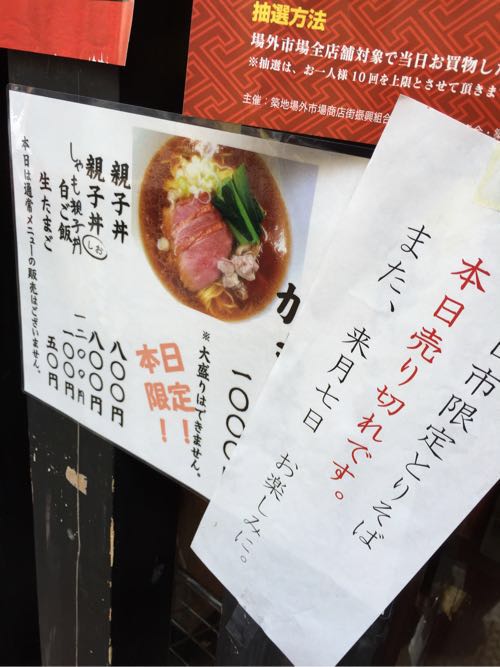 抽選方法
場外市場全店舗対象で当日お買物した
※抽選は、お一人様10回を上限とさせて頂きま
主催：築地場外市場商店街振興組合
市限定とりそば
本日売り切れです。
また、来月七日
お楽しみに。
か
一〇〇〇
※大盛りはできません。
本日
限定
!!
親子丼 八〇〇円
親子丼 しお 八〇〇円
しゃも親子丼 一二〇〇円
白ご飯 二〇〇円
生たまご 五〇円
本日は通常メニューの販売はございません。